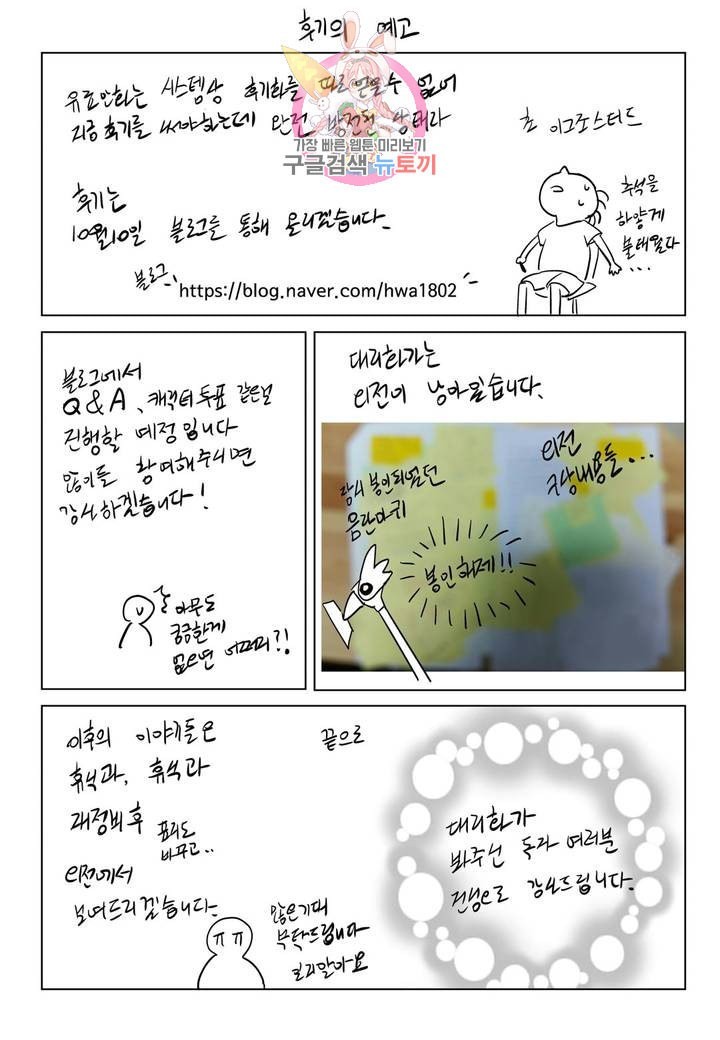 후기의 예고
유료만화는 시스템상 후기화를 따로 얻을 수 없어
지금 후기를 써야하는데 완전 방전된 상태라
가장 빠른 웹툰 미리보기
구글검색 뉴토끼
초 이그조스티드
후기는
10월10일 블로그를 통해 올리겠습니다.
추석을
하얗게
불태웠다
...
블로그
https://blog.naver.com/hwa1802
블로그에서
Q&A, 캐릭터 투표 같은걸
진행할 예정입니다
많이들 참여해주시면
감사하겠습니다!
아무도
궁금한게
없으면 어쩌지?!
대리화가는
외전이 남아있습니다.
외전
구상내용들...
잠시 봉인되었던
음란마귀
봉인해제!!
이후의 이야기들은
휴식과, 휴식과
재정비 후
표지도
바꾸고..
외전에서
보여드리겠습니다.
ㅠㅠ
많은기대
부탁드립니다
끝으로
대리화가
봐주신 독자 여러분
진심으로 감사드립니다.